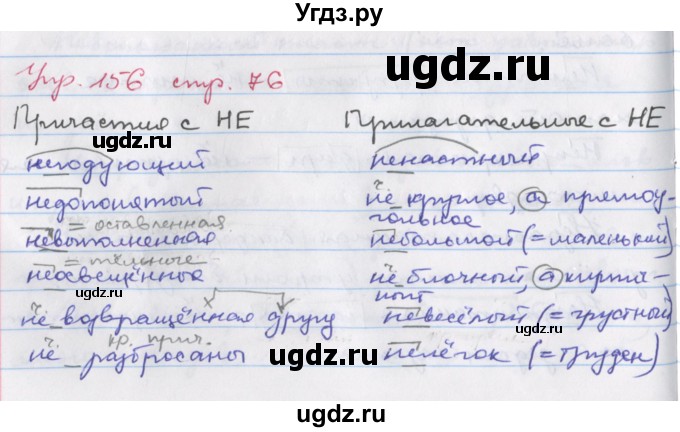 Угдз.ру
ugdz.ru
Упр. 156 стр. 76
Причастия с НЕ
Прилагательные с НЕ
негодующий
ненастный
недопонятый
не круглое, а прямоу-
гольное
= оставленная
невыполненная
небольшой (= маленький)
= тёмные
неосвещённые
не блочный, а кирпи-
чный
ugdz.ru
х
не возвращённая другу
невесёлый (= грустный)
кр. прич.
не разбросаны
нелёгок (= труден)
ugdz.ru
ugdz.ru
ugdz.ru
ugdz.ru
ugdz.ru